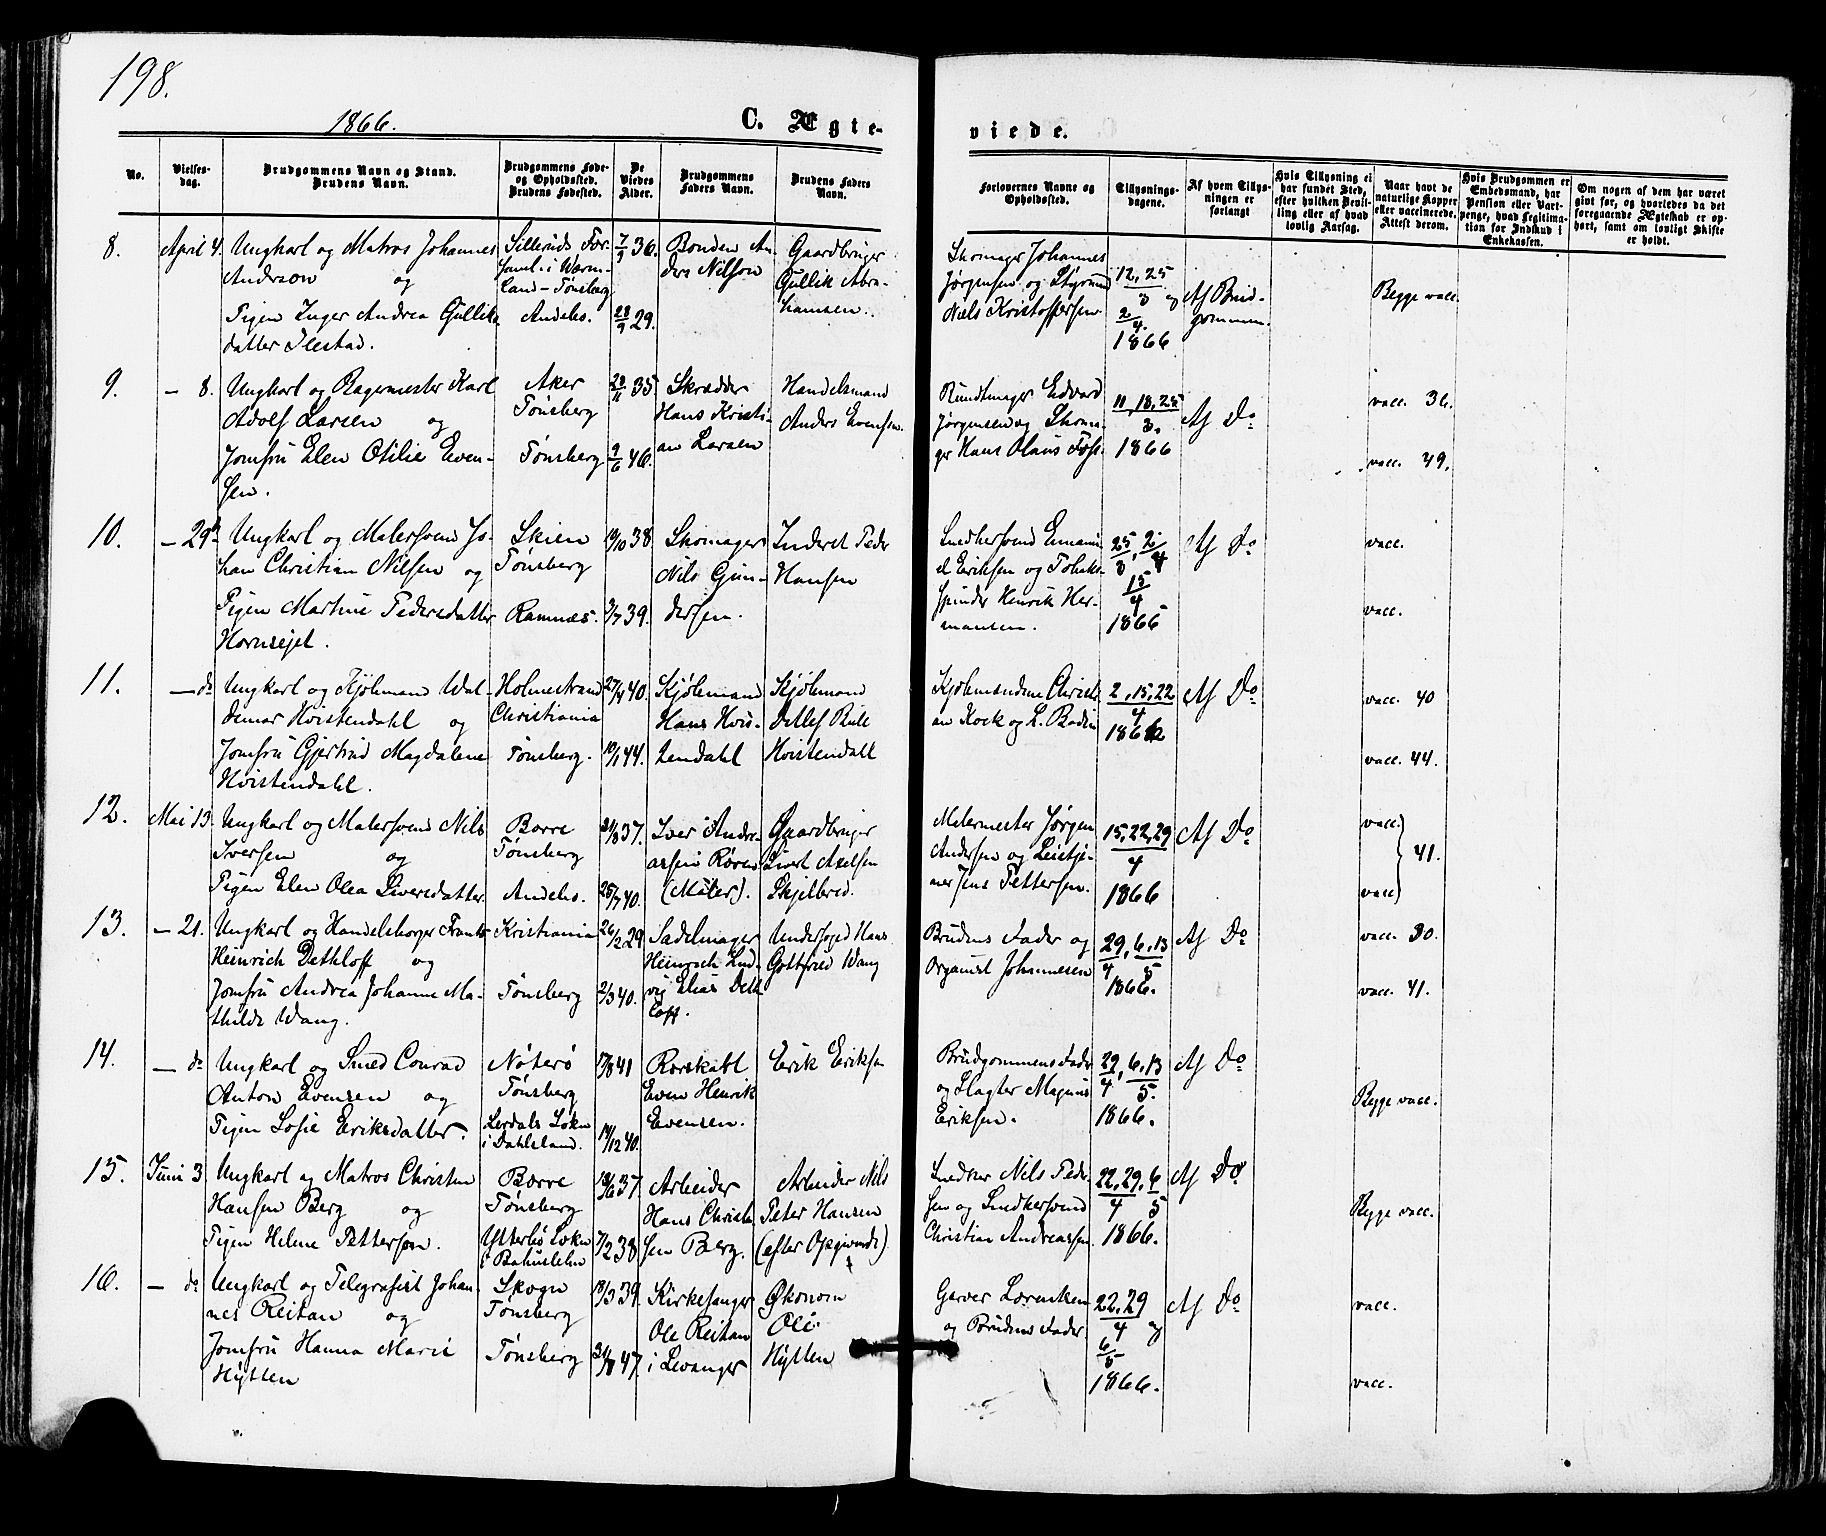 198.
1866.
C. Ægte-
viede.
No.
Vielses-
dag.
Brudgommens Navn og Stand.
Brudens Navn.
Brudgommens Føde-
og Opholdssted.
Brudens Fødested.
De
Viedes
Alder.
Brudgommens
Faders Navn.
Brudens Faders
Navn.
Forlovernes Navne og
Opholdssted.
Tillysnings-
dagene.
Af hvem Tillys-
ningen er
forlangt
Hvis Tillysning ei
har fundet Sted,
efter hvilken Bevil-
ling eller af hvad
lovlig Aarsag.
Naar havt de
naturlige Kopper
eller vaccinerede.
Attest derom.
Hvis Brudgommen er
Embedsmand, har
Pension eller Vart-
penge, hvad Legitima-
tion for Indskud i
Enkekassen.
Om nogen af dem har været
gift før, og hvorledes da det
foregaaende Ægteskab er op-
hørt, samt om lovligt Skifte
er holdt.
8.
April 4.
Ungkarl og Matros Johannes
Anderson og
Pigen Inger Andrea Gulliks
datter Ilestad.
Sillerids For-
saml. i Warm-
land - Tønsberg
Andebo.
36.
28/9 29.
Bonden An-
ders Nilson
Gaardbruger
Gullik Abra-
hamsen.
Skomager Johannes
Jørgensen og Styrmand
Niels Kristoffersen
12, 25/3 og
2/4.
1866
Af Brud-
gommen.
Begge vacc.
9.
— 8.
Ungkarl og Bagermester Karl
Adolf Larsen og
Jomfru Elen Otilie Even-
sen.
Aker
Tønsberg
Tønsberg
35.
9/6 46.
Skrædder
Hans Kristi-
an Larsen
Handelsmand
Anders Evensen.
Rundtmager Edvard
Jørgensen og Skoma-
ger Hans Olaus Foss.
11, 18, 25/3.
1866
Af Do
vacc. 36.
vacc. 49.
10.
— 29d
Ungkarl og Malersvend Jo-
han Christian Nilsen og
Pigen Martine Pedersdatter
Hornsejet.
Skien
Tønsberg
Ramnæs.
19/10 38.
3/7 39.
Skomager
Nils Gun-
dersen.
Inderst Peder
Hansen
Snedkersvend Emanu-
el Eriksen og Tobaks-
spinder Henrik Her-
mansen.
25/3, 2/4
15/4
1866
Af Do
vacc.
vacc.
11.
— do
Ungkarl og Kjøbmand Wal-
demar Hvistendahl og
Jomfru Gjertrud Magdalene
Hvistendahl.
Holmestrand
Christiania
Tønsberg.
40.
19/1 44.
Kjøbmand
Hans Hvis-
tendahl
Kjøbmand
Detlef Bull
Hvistendahl
Kjøbmændene Christi-
an Kock og L. Bodin
2, 15, 22/4
1866
Af Do
vacc. 40
vacc. 44.
12.
Mai 13.
Ungkarl og Malersvend Nils
Iversen og
Pigen Elen Olea Siversdatter.
Borre
Tønsberg
Andebo.
37.
25/7 40.
Iver Andre-
assen Røren
(Maler).
Gaardbruger
Sivert Axelsen
Skjelbred.
Malermester Jørgen
Andersen og Leietje-
ner Jens Pettersen.
15, 22, 29/4
1866
Af Do
vacc.
41.
vacc
13.
— 21.
Ungkarl og Handelsborger Frants
Heinrich Dethloff og
Jomfru Andrea Johanne Ma-
thilde Wang.
Kristiania
Tønsberg
26/12 29.
2/3 40.
Sadelmager
Heinrich Lud-
vig Elias Deth-
loff.
Underfoged Hans
Gottfried Wang
Brudens Fader og
Organist Johannesen
29/4, 6, 13/5
1866.
Af Do
vacc. 30.
vacc. 41.
14.
— do
Ungkarl og Smed Conrad
Anton Evensen og
Pigen Sofie Eriksdatter.
Nøterø
Tønsberg
Lerdals Sokn
i Dahlsland.
17/8 41
14/12 40.
Rorskarl
Even Henrik
Evensen.
Erik Eriksen
Brudgommens Fader
og Slagter Magnus
Eriksen.
29/4, 6, 13/5.
1866.
Af Do
Begge vacc.
15.
Juni 3
Ungkarl og Matros Christen
Hansen Berg og
Pigen Helene Petterson.
Borre
Tønsberg
Ytterbö Sokn
i Bahuslehn
18/6 37
7/2 38
Arbeider
Hans Christi-
sen Berg.
Arbeider Nils
Peter Hansen
(efter Opgivende).
Snedker Nils Peder-
sen og Snedkersvend
Christian Andreassen.
22, 29/4, 6/5
1866.
Af Do
Begge vacc.
16.
— do
Ungkarl og Telegrafist Johan-
nes Reitan og
Jomfru Hanna Marie
Hytten
Skogn
Tønsberg
Tønsberg
39.
47.
Kirkesanger
Ole Reitan
i Levanger
Økonom
Ole
Hytten
Garver Lorentzen
og Brudens Fader
22, 29/4 og
6/5
1866.
Af Do
vacc.
vacc.